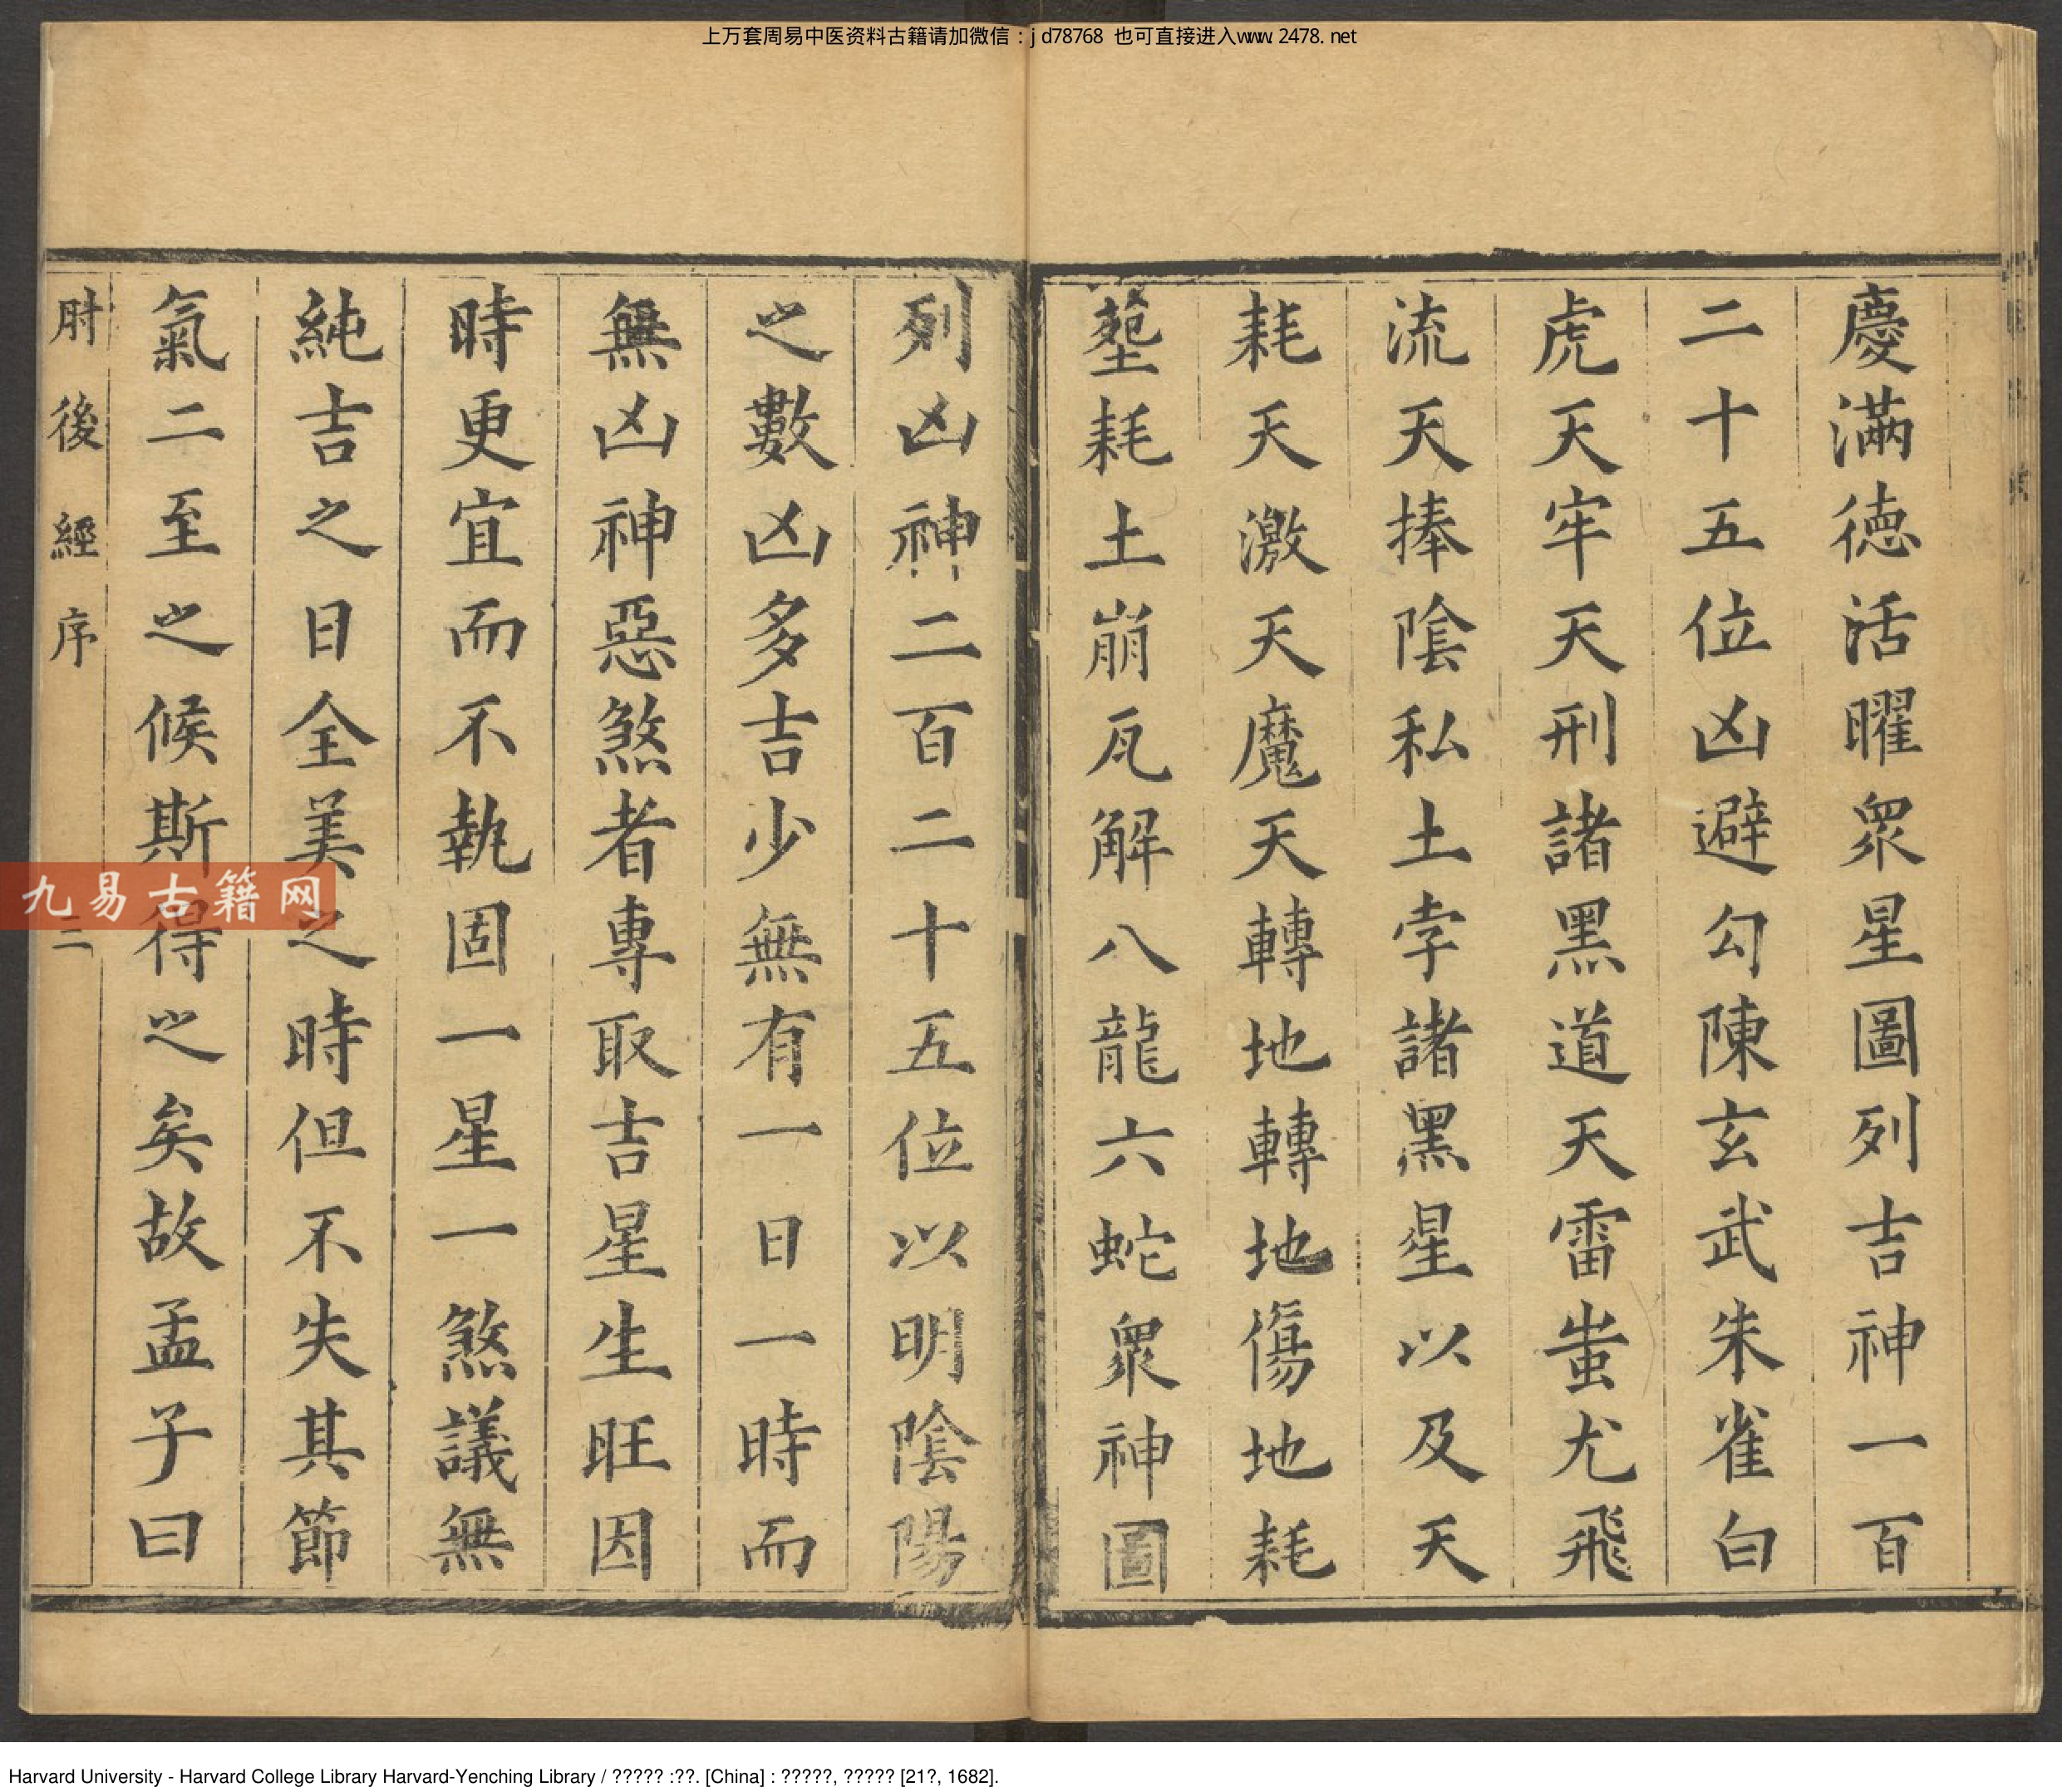 上万套周易中医资料古籍请加微信：jd78768 也可直接进入www.2478.net
慶滿徳活曜衆星圖列吉神一百
二十五位凶避勾陳玄武朱雀白
虎天牢天刑諸黑道天雷蚩尤飛
流天捧陰私土孛諸黑星以及天
耗天激天魔天轉地轉地傷地耗
耗土崩瓦解八龍六蛇衆神圖
列凶神二百二十五位以明陰陽
之數凶多吉少無有一日一時而
無凶神惡煞者專取吉星生旺因
時更宜而不執固一星一煞議無
純吉之日全美之時但不失其節
氣二至之候斯得之矣故孟子曰
肘後經序
三
九易古籍网
Harvard University - Harvard College Library Harvard-Yenching Library / ????? :??. [China] : ?????, ????? [21?, 1682].